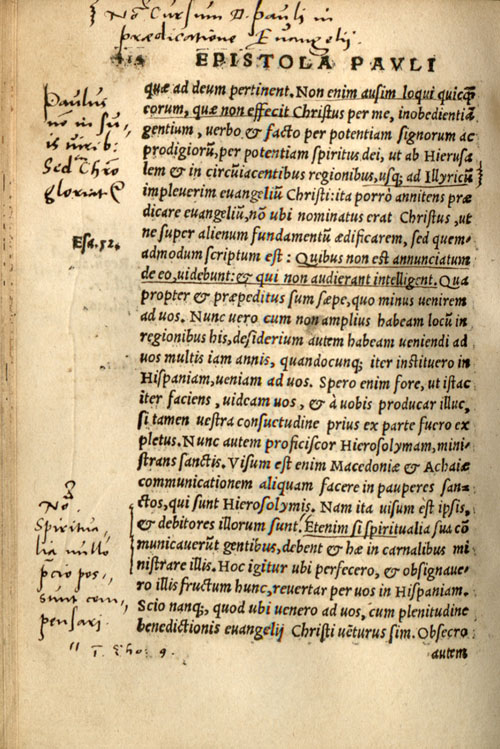 No: Cursum D. Pauli in
prædicatione Euangelij.
EPISTOLA PAVLI
quæ ad deum pertinent. Non enim ausim loqui quicq̃
eorum, quæ non effecit Christus per me, inobedientiā
gentium, verbo, & facto per potentiam signorum ac
prodigiorū, per potentiam spiritus dei, ut ab Hierusa
lem & in circūiacentibus regionibus, usq; ad Illyricū
impleuerim euangeliū Christi: ita porrò annitens præ
dicare euangeliū, nō ubi nominatus erat Christus, ut
ne super alienum fundamentū ædificarem, sed quem-
admodum scriptum est: Quibus non est annunciatum
de eo, uidebunt: & qui non audierant intelligent. Qua
propter & præpeditus sum sæpe, quo minus uenirem
ad uos. Nunc uero cum non amplius habeam locū in
regionibus his, desiderium autem habeam ueniendi ad
uos multis iam annis, quandocunq; iter instituero in
Hispaniam, ueniam ad uos. Spero enim fore, ut istac
iter faciens, uideam uos, & à uobis producar illuc,
si tamen uestra consuetudine prius ex parte fuero ex
pletus. Nunc autem proficiscor Hierosolymam, mini-
strans sanctis. Visum est enim Macedoniæ & Achaiæ
communicationem aliquam facere in pauperes san-
ctos, qui sunt Hierosolymis. Nam ita uisum est ipsis,
& debitores illorum sunt. Etenim si spiritualia sua cō
municauerūt gentibus, debent & hæ in carnalibus mi
nistrare illis. Hoc igitur ubi perfecero, & obsignaue-
ro illis fructum hunc, reuertar per uos in Hispaniam.
Scio nanq;, quod ubi uenero ad uos, cum plenitudine
benedictionis euangelij Christi uēturus sim. Obsecro
autem
Paulus
nō in su-
is uirib:
Sed Chrō
gloriat
Esa. 52.
No:
Spiritua-
lia nullo
p̄cio pos-
sunt com-
pensari.